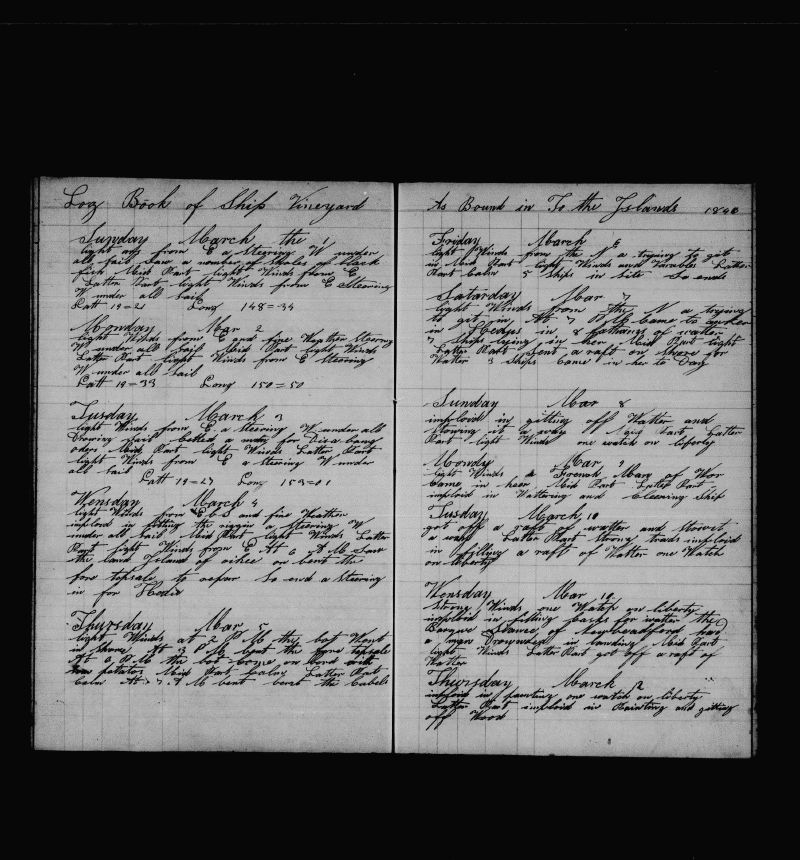 Log Book of Ship Vineyard
Sunday March the 1
light ars from E a steering W under
all sail Saw a number of shales of black
fish Mid Part light Winds from E
Latter Part light Winds from E Steering
W under all sail
Latt 19=21 Long 148=34
Monday Mar 2
light Winds from E and fine Weather steering
W under all sail Mid Part light Winds
Latter Part light Winds from E steering
W under all sail
Latt 19=33 Long 150=50
Tusday March 3
light Winds from E a steering W under all
Drawing sail a man for Disabaing
oders Mid Part light Winds Latter Part
light Winds from E a steering W under
all sail
Latt 19=27 Long 153=01
Wensday March 4
light Winds from E S and fine Weather
imploid in fitting the riggin a steering W
under all sail Mid Part light Winds Latter
Part light Winds from E At 6 A M Saw
the land Island of oihee on bent the
fore topsale to repar So end a Steering
in for
Thursday Mar 5
light Winds at 2 P M the bot Went
in shore At 3 P M bent the fore topsale
At 6 P M the bot come on bord with
potatos Mid Part Calm Latter Part
Calm At 7 A M bent bent the Cabels
As Bound in To the Islands 1840
Friday March 6
light Winds from the N a trying to get
in Mid Part light Winds and Variables Latter
Part Calm 5 Ships in Site So ends
Satarday Mar 7
light Winds from the N a trying
to get in At 7 P M Came to anker
in in 8 fathoms of water
7 Ships lying in her Mid Part light
Latter Part Sent a raft on shore for
Watter 3 Ships Came in her to Day
Sunday Mar 8
imploid in gitting off Watter and
Stowing it a way Main Part Latter
Part light Winds one watch on liberty
Mondy Mar 9
light Winds a Mary of Wor
Came in heer Mid Part Latter Part
imploid in Wattering and Cleening Ship
Tusday March 10
got off a raft of watter and stowed
a way Latter Part strong trads imploid
in filling a raft of Watter one Watch
on liberty
Wensday Mar 10
Strong Winds one Watch on liberty
imploid in filling casks for watter the
Barque of Newbeadford had
a man Drownded in landing Mid Part
light Winds Latter Part got off a raft of
Watter
Thursday March 12
imploid in painting one watch on liberty
Latter Part imploid in Painting and gitting
off Wood